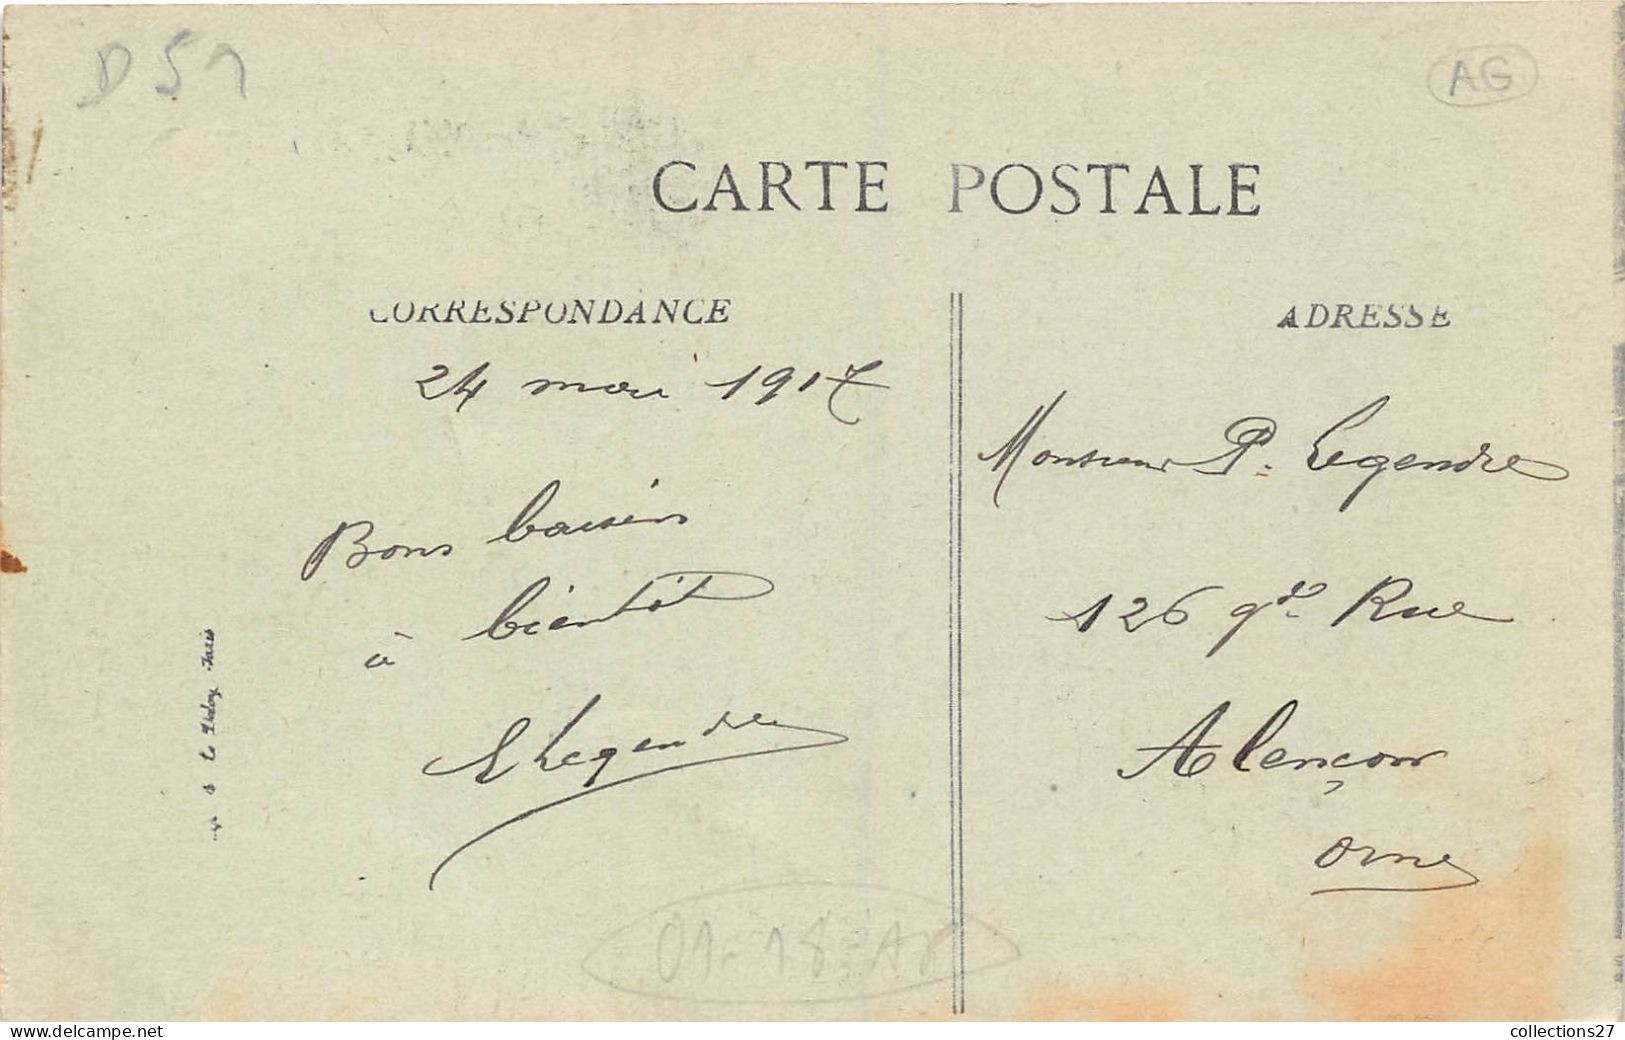 D 51
AG
CARTE POSTALE
CORRESPONDANCE
24 mai 1917
Bons baisers
à bientôt
E Legendre
ADRESSE
Monsieur P. Legendre
126 gde Rue
Alençon
Orne
collections27
www.delcampe.net